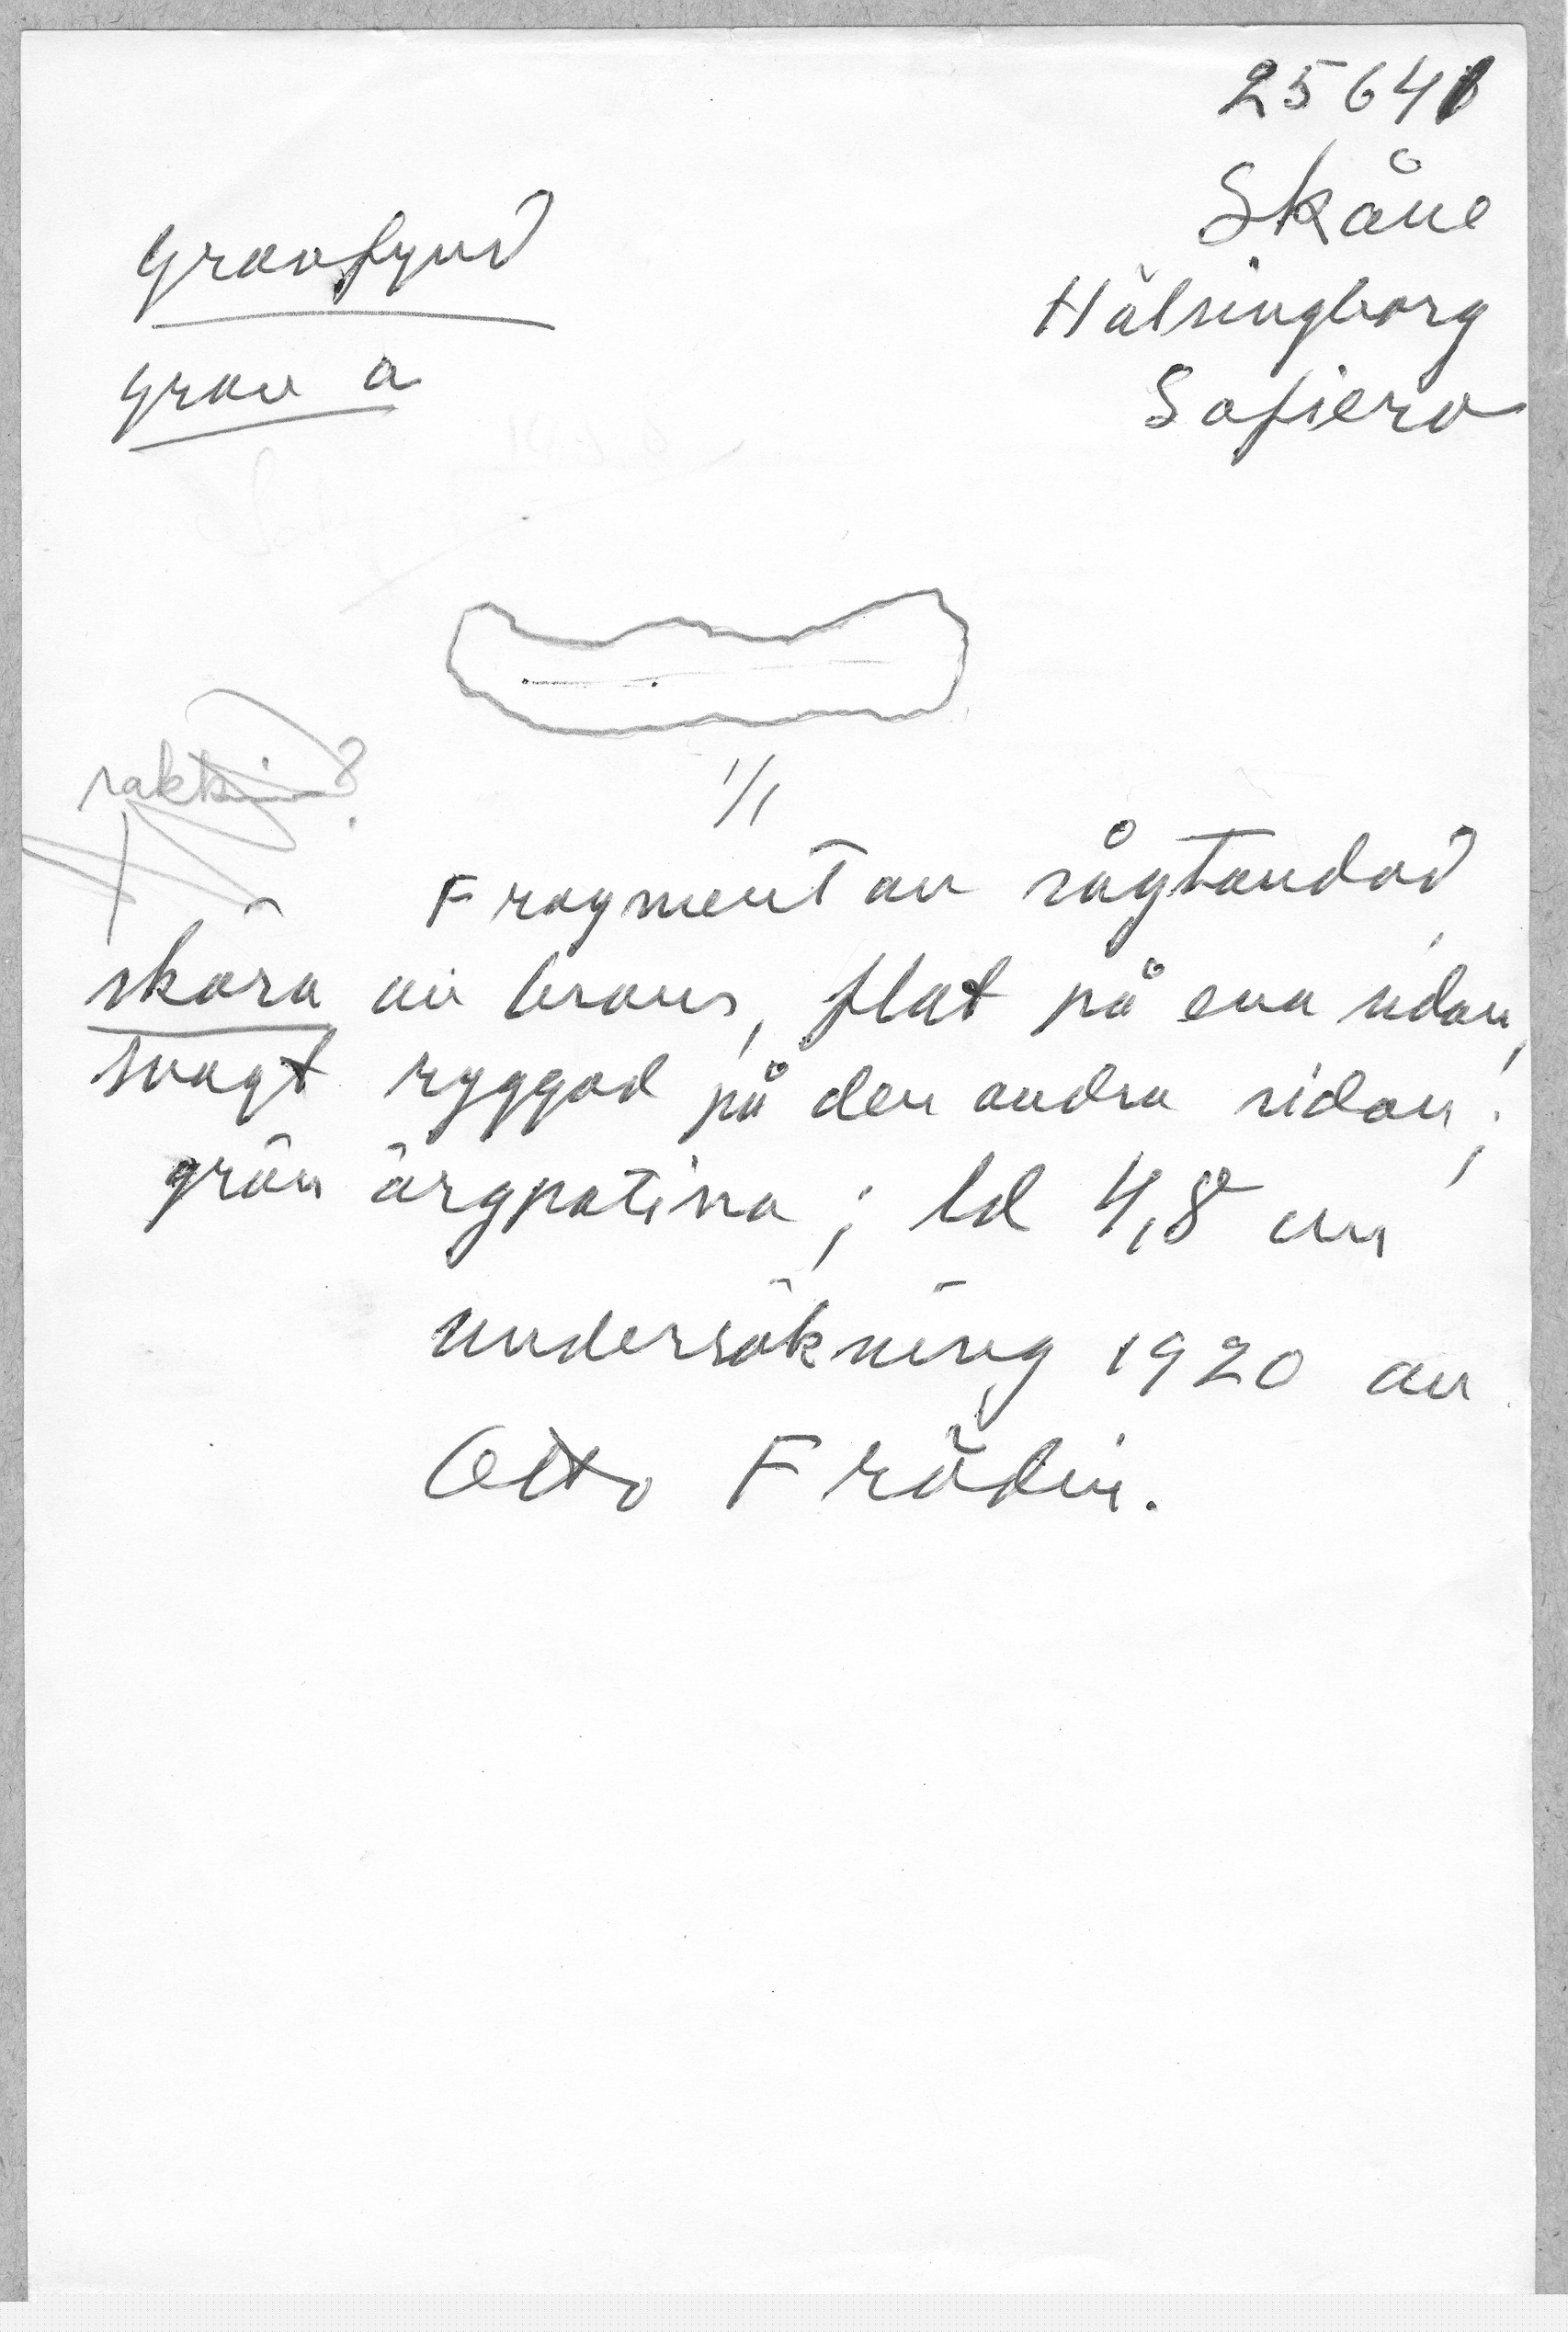 25641
Skåne
Hälsingborg
Sofiero
Gravfynd
grav a
1/1
Fragment av sågtandad
skära av brons, flat på ena sidan,
svagt ryggad på den andra sidan;
grön ärgpatina; ld 4,8 cm
undersökning 1920 av
Otto Frödin.